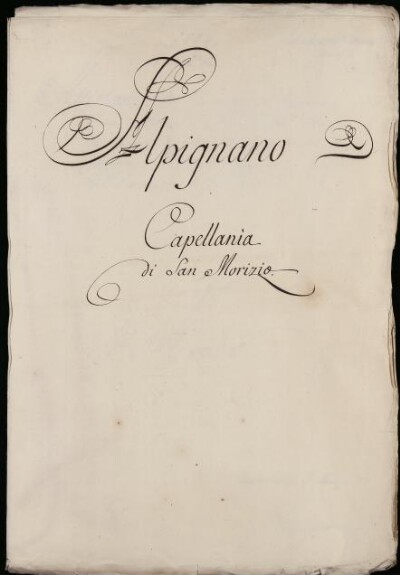 Alpignano
Capellania
di San Morizio.